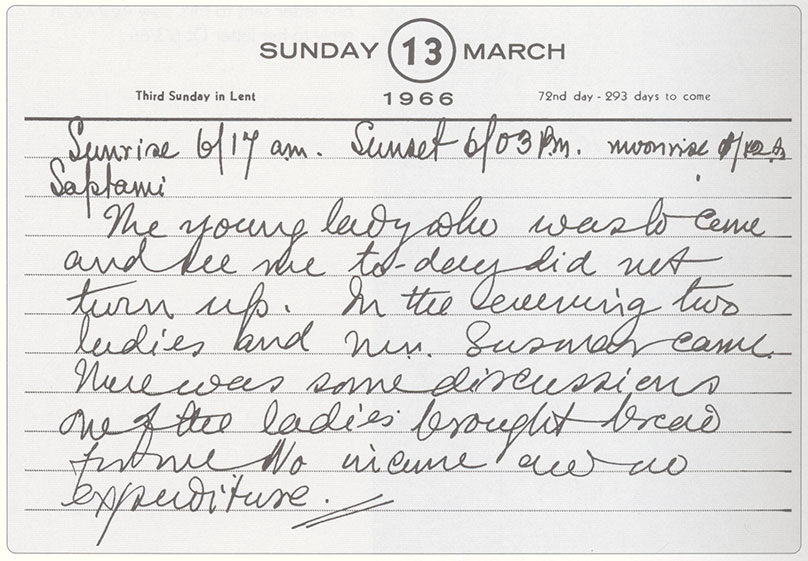 SUNDAY 13 MARCH
Third Sunday in Lent 1966 72nd day - 293 days to come
Sunrise 6/17 a.m. Sunset 6/03 P.m. moonrise
Saptami
The young lady who was to come
and see me to-day did not
turn up. In the evening two
ladies and came.
There was some discussions
one of the ladies brought bread
for me No income and no
expenditure.